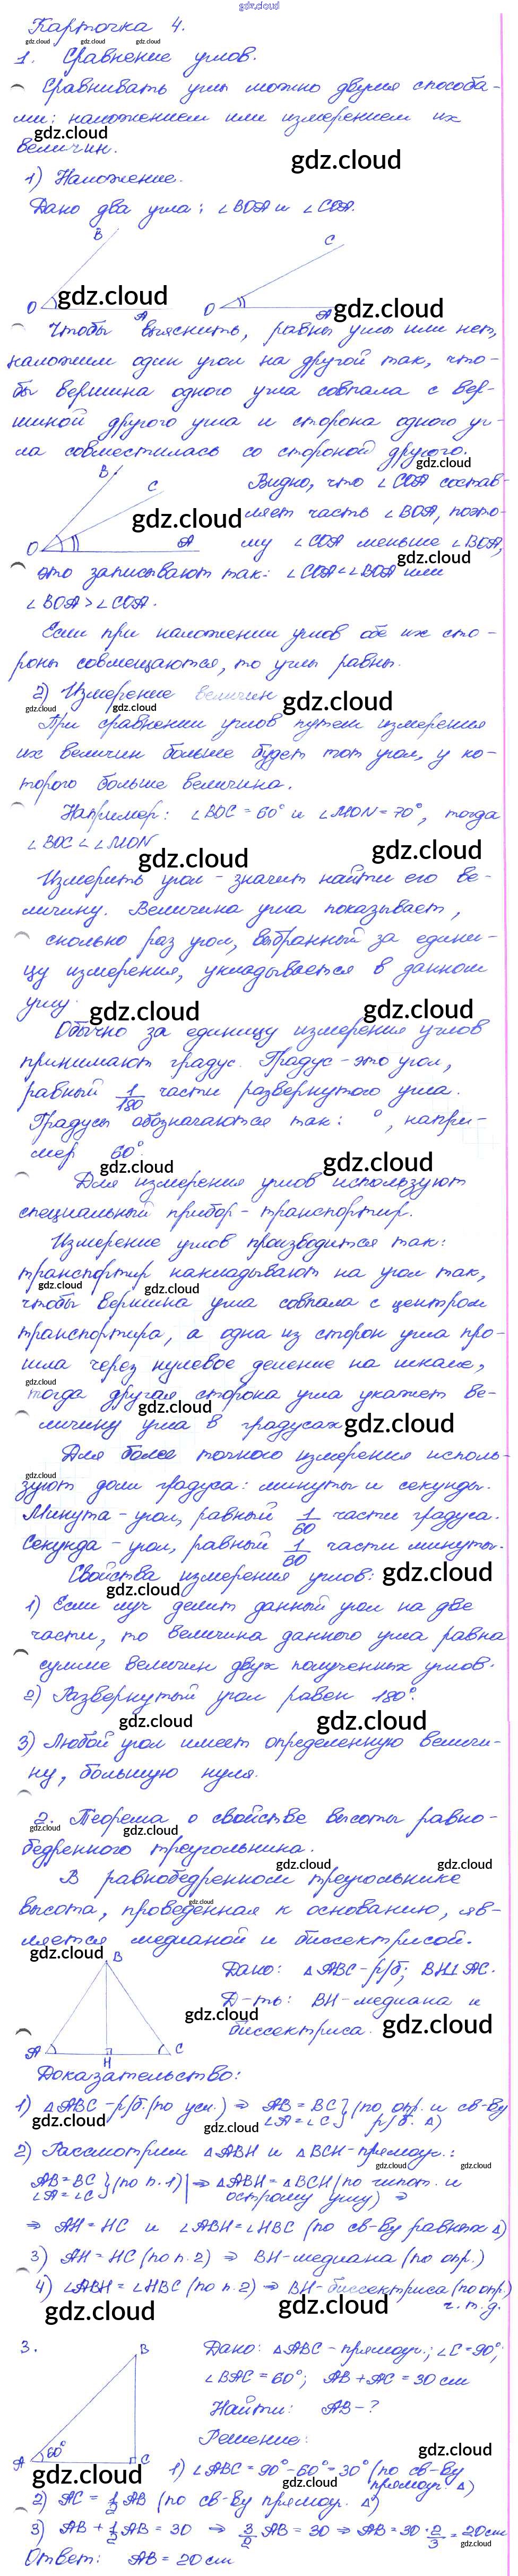 gdz.cloud
Карточка 4.
gdz.cloud gdz.cloud gdz.cloud
1. Сравнение углов.
Сравнивать углы можно двумя способа-
ми: наложением или измерением их
gdz.cloud
величин.
gdz.cloud
1) Наложение.
Дано два угла: ∠BOA и ∠COA.
B C
O gdz.cloud A O A gdz.cloud
Чтобы выяснить, равны углы или нет,
наложим один угол на другой так, что-
бы вершина одного угла совпала с вер-
шиной другого угла и сторона одного уг-
ла совместилась со стороной другого.
gdz.cloud
B C Видно, что ∠COA состав-
gdz.cloud ляет часть ∠BOA, поэто-
O A му ∠COA меньше ∠BOA,
gdz.cloud
это записывают так: ∠COA < ∠BOA или
∠BOA > ∠COA.
Если при наложении углов обе их сто-
роны совмещаются, то углы равны.
2) Измерение величин
gdz.cloud gdz.cloud gdz.cloud
При сравнении углов путем измерения
их величин больше будет тот угол, у ко-
торого больше величина.
Например: ∠BOC = 60° и ∠MON = 70°, тогда
∠BOC < ∠MON
gdz.cloud gdz.cloud
Измерить угол - значит найти его ве-
личину. Величина угла показывает,
сколько раз угол, выбранный за едини-
цу измерения, укладывается в данном
углу.
gdz.cloud gdz.cloud
Обычно за единицу измерения углов
принимают градус. Градус - это угол,
равный 1/180 части развернутого угла.
Градусы обозначаются так: °, напри-
мер 60°.
gdz.cloud gdz.cloud
Для измерения углов используют
специальный прибор - транспортир.
Измерение углов производится так:
транспортир накладывают на угол так,
gdz.cloud gdz.cloud
чтобы вершина угла совпала с центром
транспортира, а одна из сторон угла про-
шла через нулевое деление на шкале,
gdz.cloud
тогда другая сторона угла укажет ве-
gdz.cloud
личину угла в градусах gdz.cloud
Для более точного измерения исполь-
gdz.cloud
зуют доли градуса: минуты и секунды.
Минута - угол, равный 1/60 части градуса.
Секунда - угол, равный 1/60 части минуты.
Свойства измерения углов: gdz.cloud
gdz.cloud
1) Если луч делит данный угол на две
части, то величина данного угла равна
сумме величин двух полученных углов.
2) Развернутый угол равен 180°.
gdz.cloud gdz.cloud
3) Любой угол имеет определенную величи-
ну, большую нуля.
2. Теорема о свойстве высоты равно-
gdz.cloud gdz.cloud
бедренного треугольника.
gdz.cloud gdz.cloud
В равнобедренном треугольнике
gdz.cloud
высота, проведенная к основанию, яв-
ляется медианой и биссектрисой.
gdz.cloud
B Дано: △ABC - р/б; BH⊥AC.
gdz.cloud Д-ть: BH - медиана и
биссектриса. gdz.cloud
A H C
Доказательство:
1) △ABC - р/б. (по усл.) ⇒ AB = BC } (по опр. и св-ву
gdz.cloud gdz.cloud ∠A = ∠C } р/б. △)
2) Рассмотрим △ABH и △BCH - прямоуг.:
gdz.cloud gdz.cloud
AB = BC } (по п. 1) | ⇒ △ABH = △BCH (по гипот. и
∠A = ∠C } острому углу) ⇒
⇒ AH = HC и ∠ABH = ∠HBC (по св-ву равных △)
3) AH = HC (по п. 2) ⇒ BH - медиана (по опр.)
4) ∠ABH = ∠HBC (по п. 2) ⇒ BH - биссектриса (по опр.)
gdz.cloud gdz.cloud ч.т.д.
3. B Дано: △ABC - прямоуг.; ∠C = 90°;
∠BAC = 60°; AB + AC = 30 см
Найти: AB - ?
Решение:
A 60° C gdz.cloud
gdz.cloud 1) ∠ABC = 90° - 60° = 30° (по св-ву
gdz.cloud прямоуг. △)
2) AC = 1/2 AB (по св-ву прямоуг. △)
3) AB + 1/2 AB = 30 ⇒ 3/2 AB = 30 ⇒ AB = 30 · 2/3 = 20 см
gdz.cloud gdz.cloud
Ответ: AB = 20 см